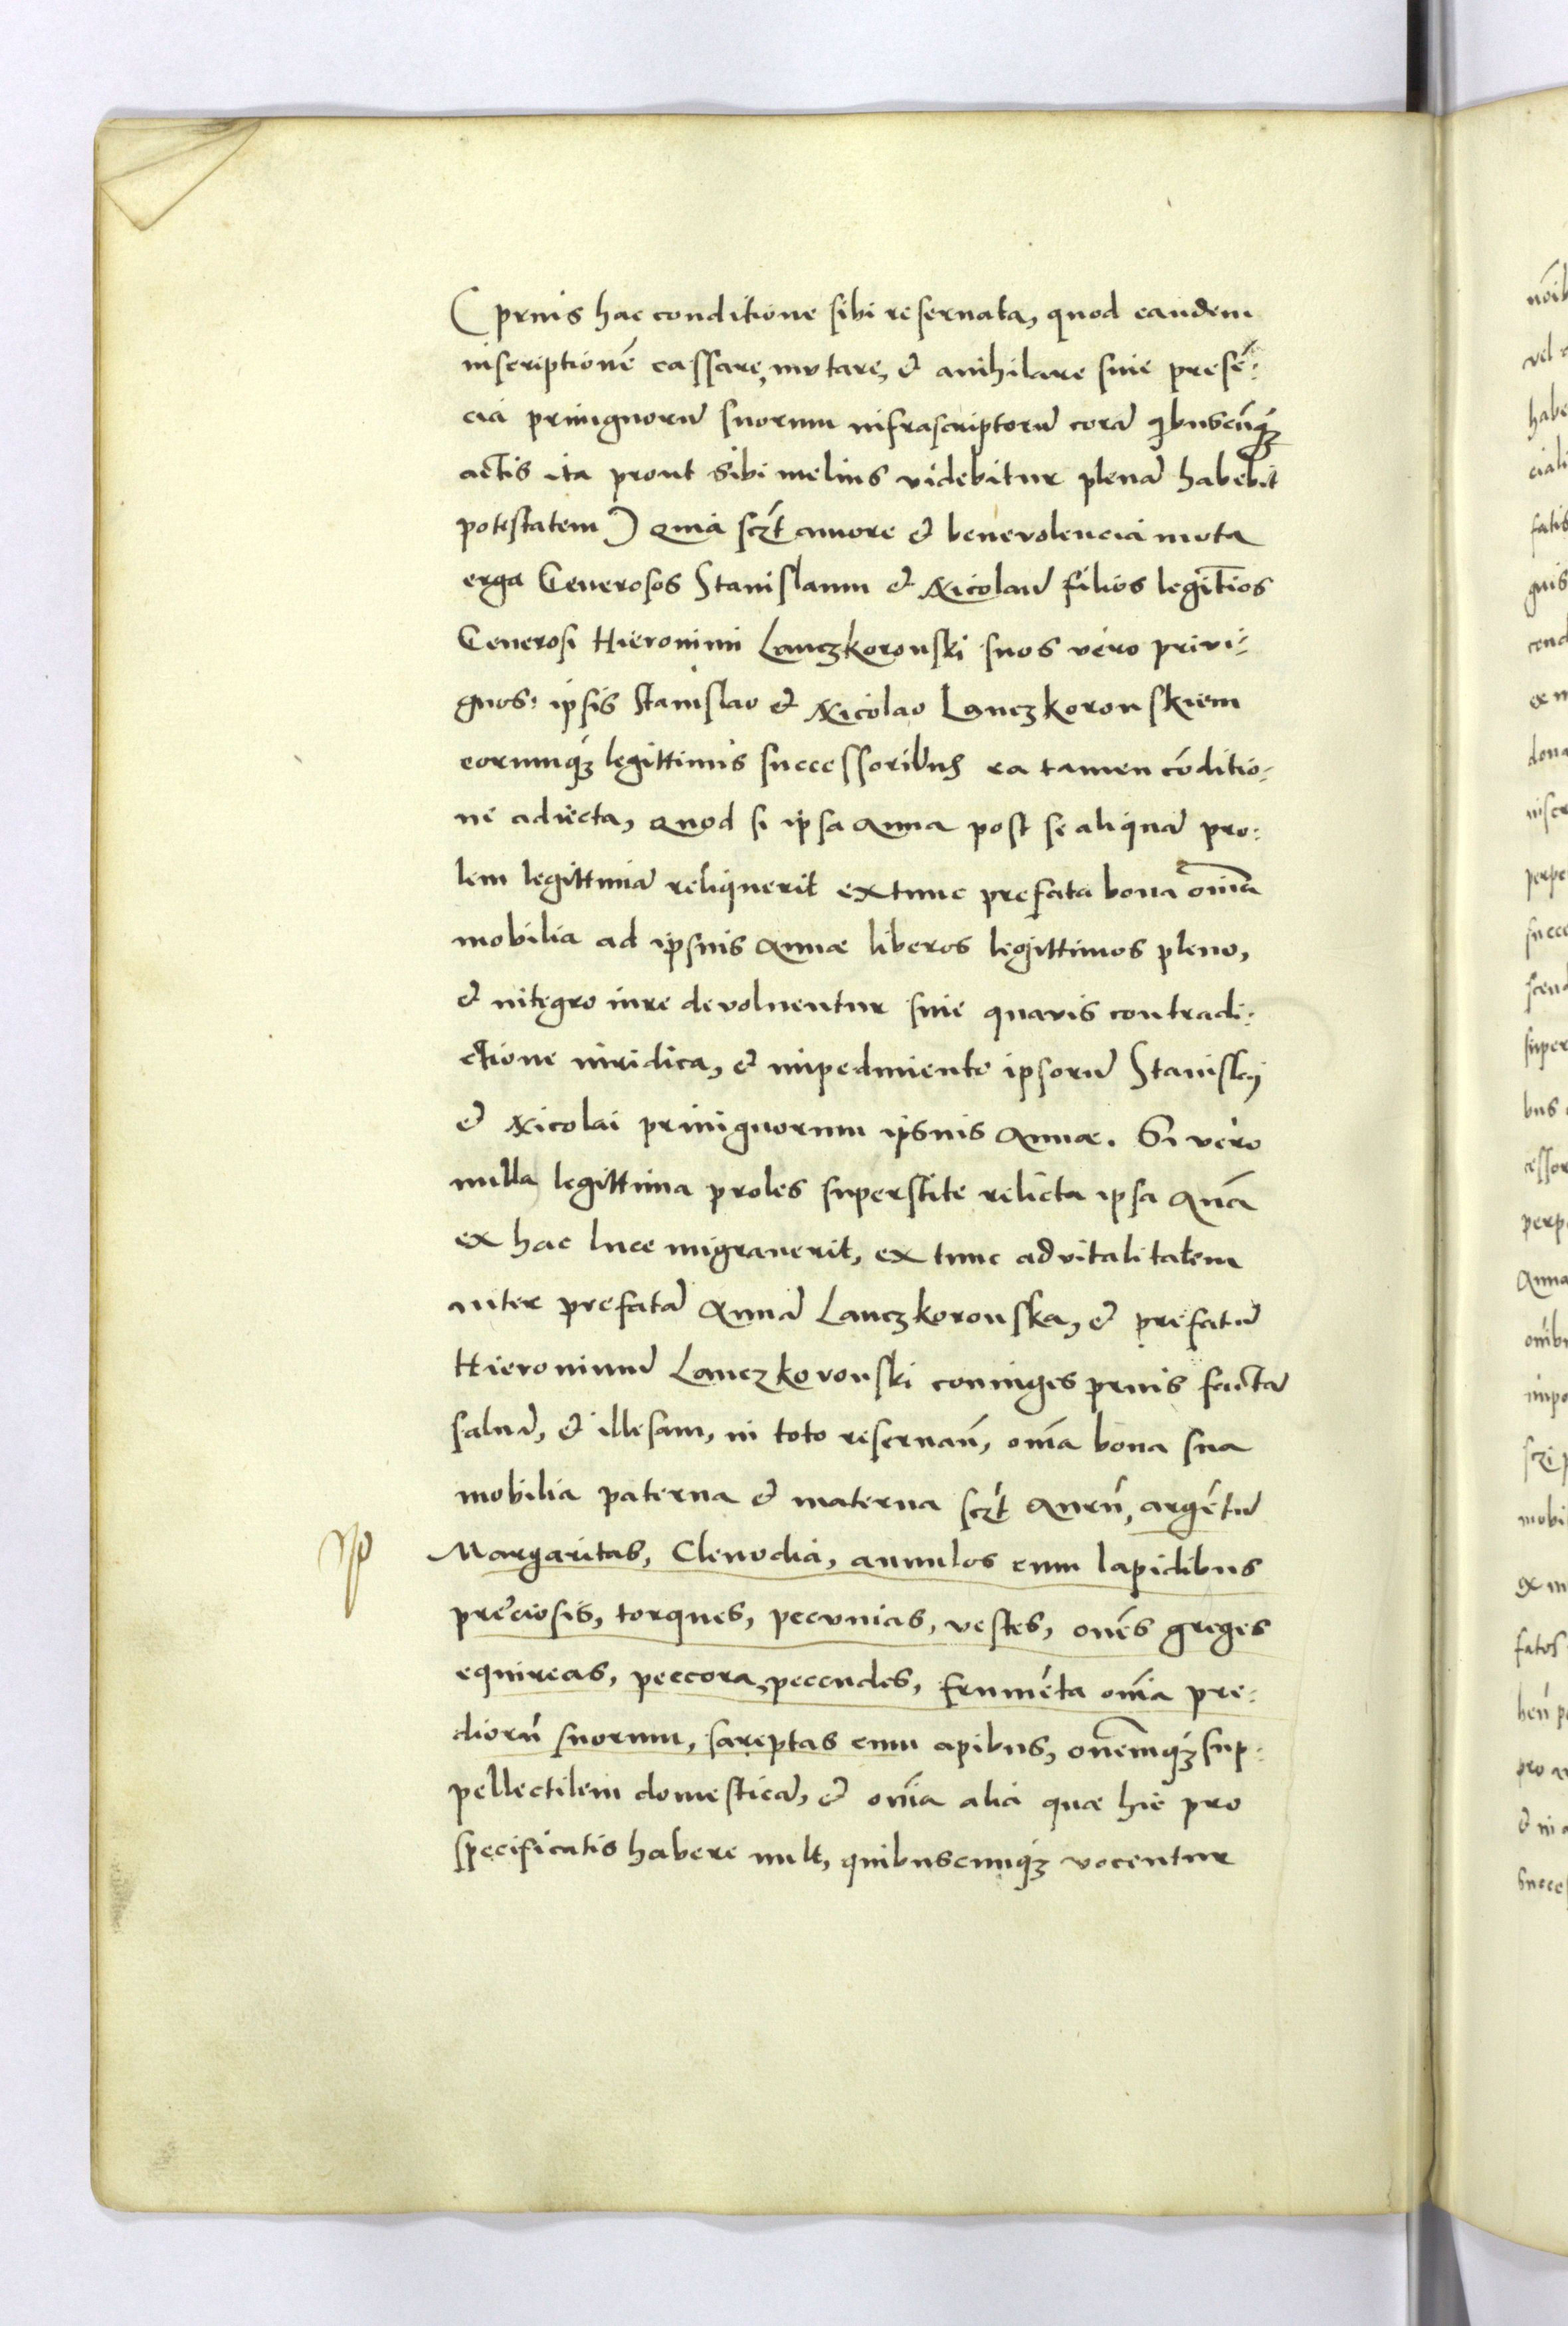 (prius hac conditione sibi reseruata, quod eandem
inscriptionē cassare, mutare, & anihilare sine presē:
cia priuignorū suorum infrascriptorū corā qbuscūq3
actis ita prout sibi melius videbitur plenā habebit
potestatem) Quia sczt amore & beneuolencia mota
erga Generosos Stanislaum & Nicolaū filios legitīos
Generosi Hieronimi Lanczkoronski suos vero privi:
gnos: ipsis Stanislao & Nicolao Lanczkoronskiem
eorumq3 legittimis successoribus ea tamen cōditio:
ne adiecta, Quod si ipsa Anna post se aliquā pro:
lem legittimā reliquerit extunc prefata bona oīnia
mobilia ad ipsius Annæ liberos legittimos pleno,
& integro iure deuoluentur sine quauis contradi:
ctione iuridica, & impedimento ipsorū Stanislaj
& Nicolai priuignorum ipsius Annæ. Si vero
nulla legittima proles superstite relicta ipsa Anā
ex hac luce migrauerit, ex tunc advitalitatem
inter prefatā Annā Lanczkoronska, & prefatū
Hieronimū Lanczkoronski coniuges prius factā
saluā, & illesam, in toto reseruan̄, om̄ia bona sua
mobilia paterna & materna sczt Aurū, argētū
Margaritas, Clenodia, annulos cum lapidibus
preciosis, torques, pecunias, vestes, om̄es greges
equireas, peccora, pecudes, frumēta om̄ia pre:
diorū suorum, sareptas cum apibus, om̄emq3 sup:
pellectilem domesticā, & om̄ia alia quæ hic pro
specificatis habere uult, quibuscumq3 vocentur